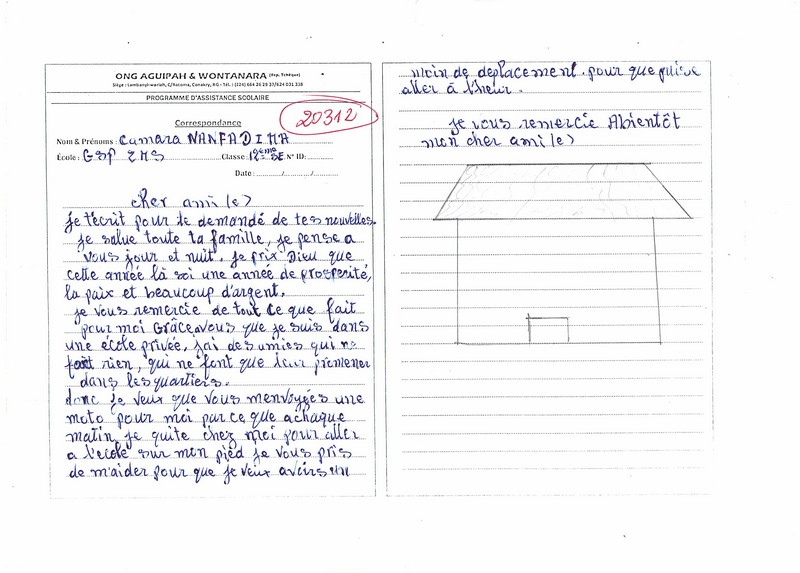 ONG AGUIPAH & WONTANARA (Rep. Tchèque)
Siège : Lambanyi-wariah, C/Ratoma, Conakry, RG - Tél. : (224) 664 26 29 37/624 031 338
PROGRAMME D'ASSISTANCE SCOLAIRE
20312
Correspondance
Nom & Prénoms : Camara NANFADIMA
École : GSP EMS Classe 12ème SE N° ID:
Date : / /
cher ami(e)
je t'écrit pour le demandé de tes nouvelles.
je salue toute ta famille, je pense a
vous jour et nuit. je prix Dieu que
cette année là soi une année de prosperité,
la paix et beaucoup d'argent.
je vous remercie de tout ce que fait
pour moi Grâce avous que je suis dans
une école privée, j'ai des amies qui ne
font rien, qui ne font que leur promener
dans les quartiers.
donc je veux que vous menvoyés une
moto pour moi par ce que achaque
matin je quite chez moi pour aller
a l'école sur mon pied je vous pris
de m'aider pour que je veux avoirs un
moin de deplacement. pour que puise
aller à l'heur.
je vous remercie Abientôt
mon cher ami(e)